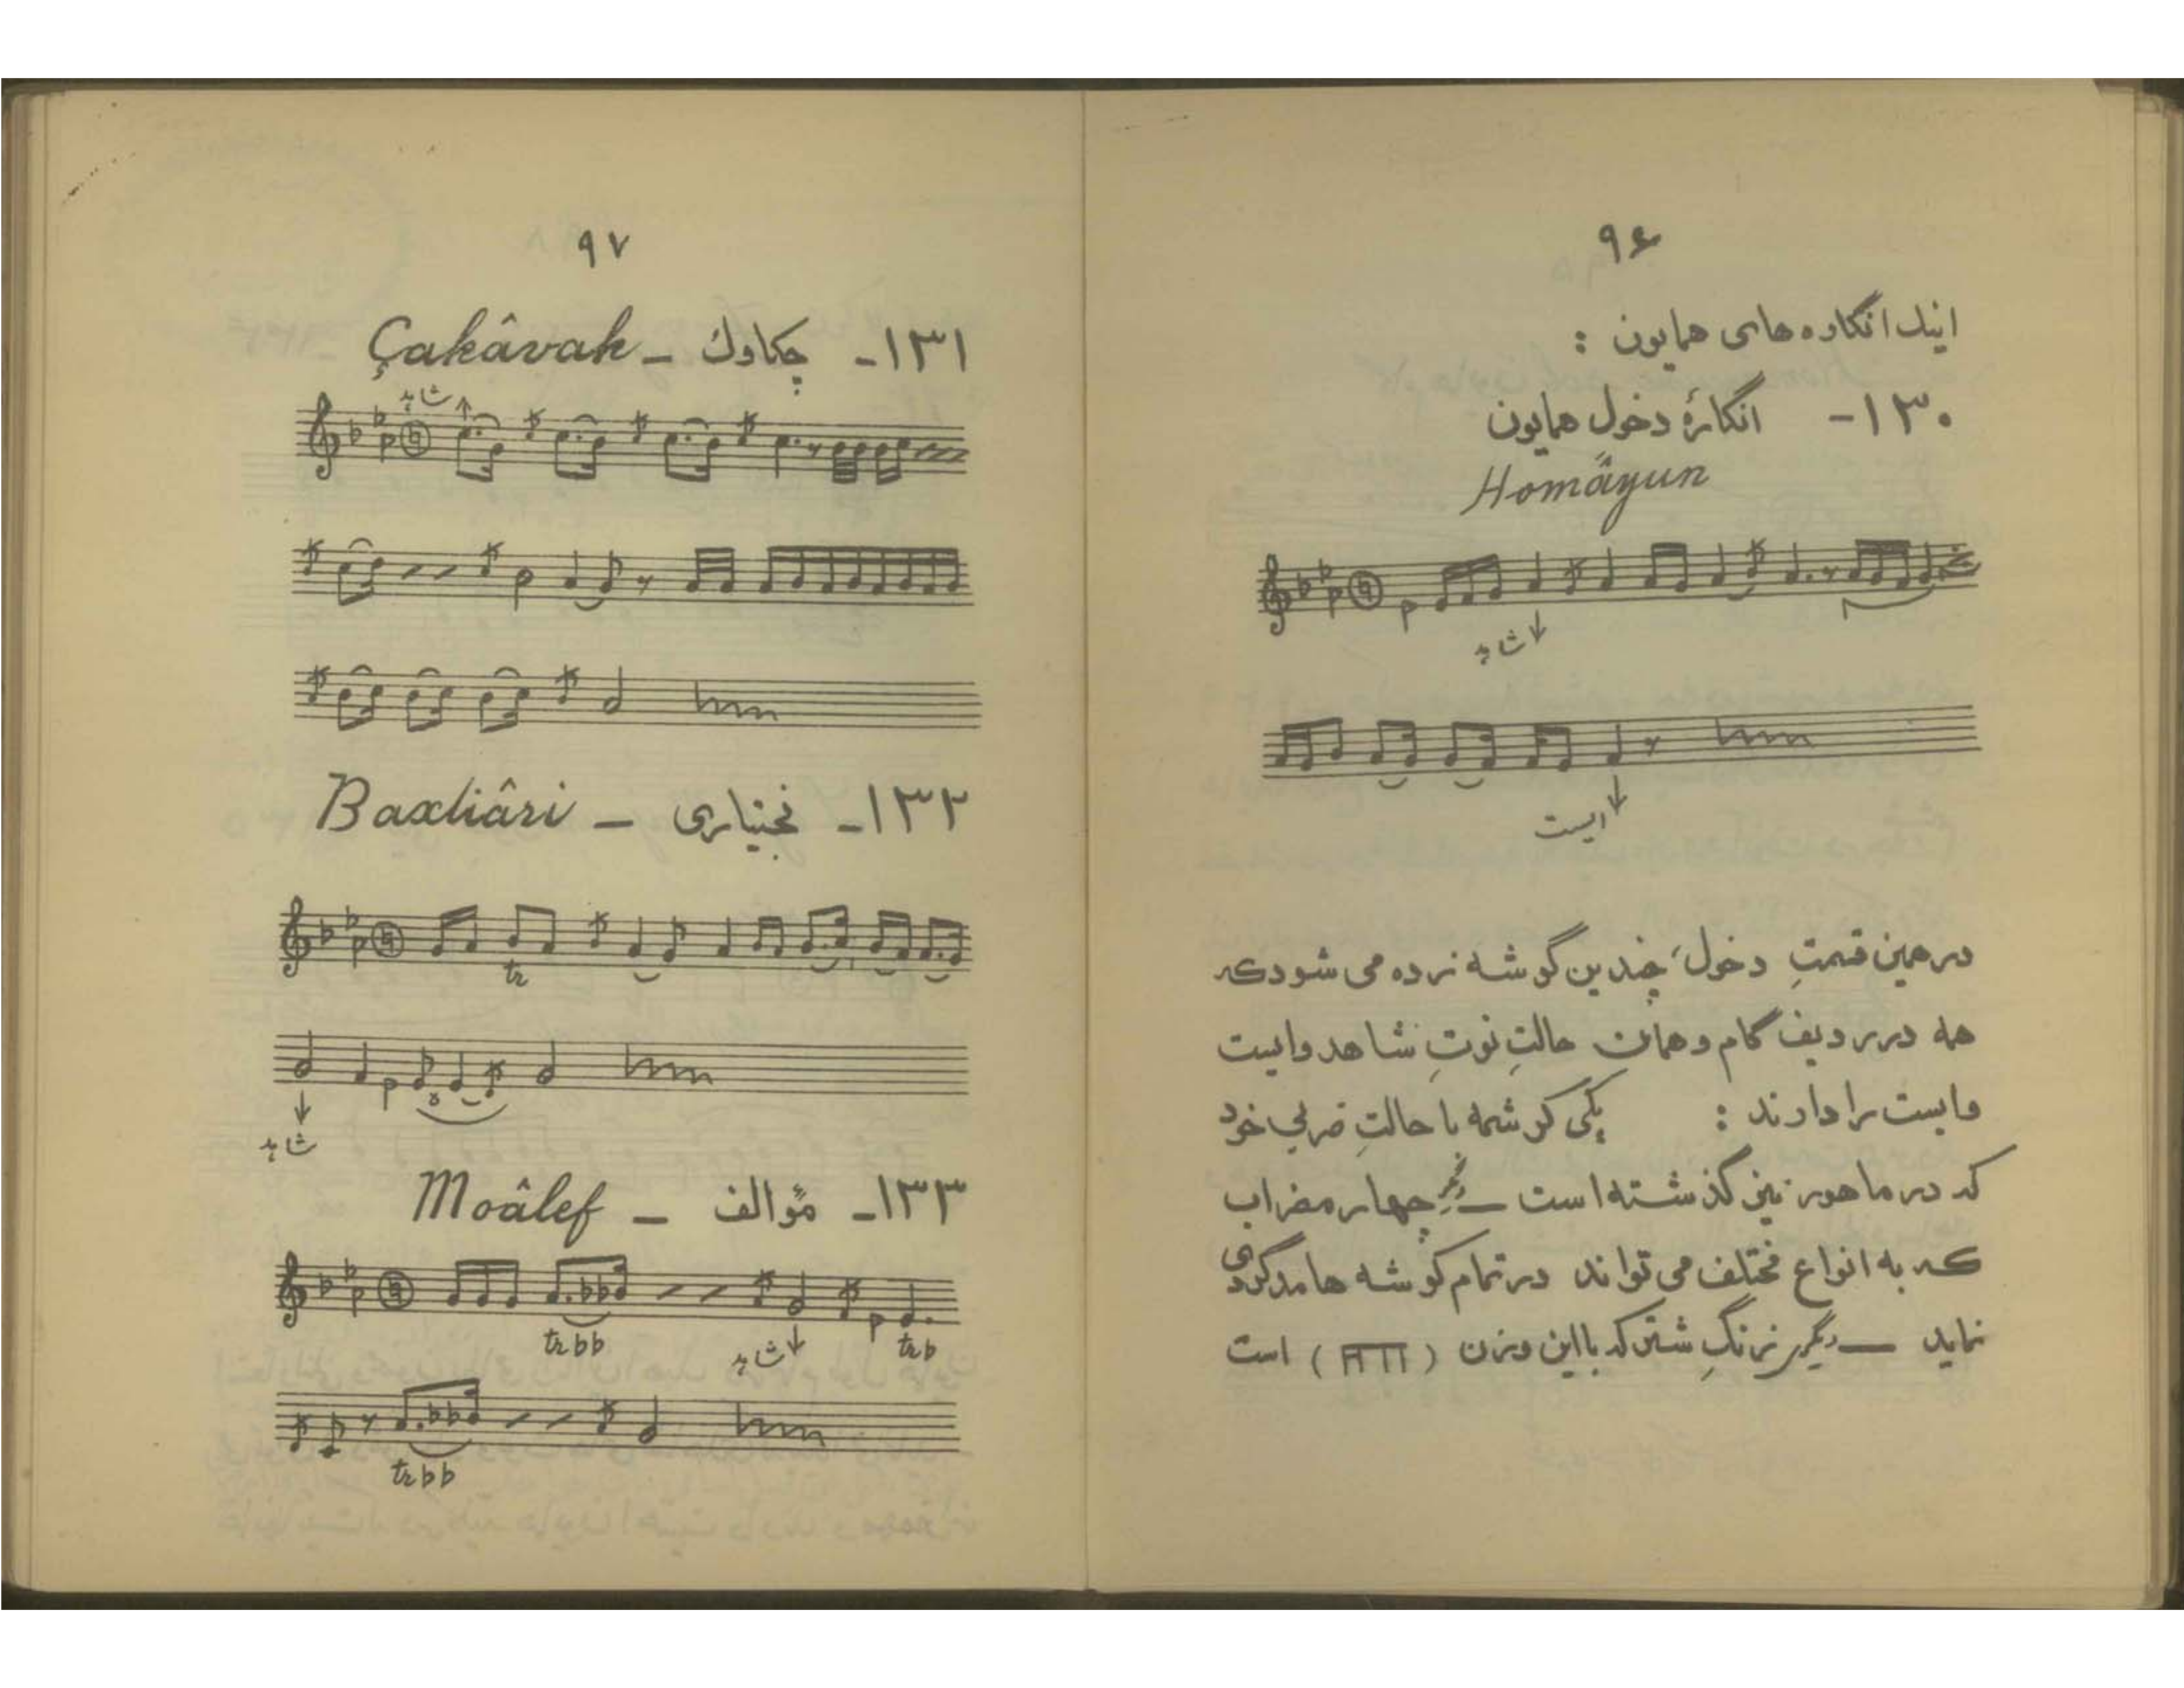 ۹۶
اینك انگاره های همایون :
۱۳۰- انگارهٔ دخول همایون
Homâyun
شاهد
ایست
در همین قسمتِ دخول، چندین گوشه زده می شود که
همه در ردیف گام و همان حالتِ نوتِ شاهد و ایست
و ایست را دارند : یکی کرشمه با حالتِ ضربی خود
که در ماهور نیز گذشته است — دیگر چهار مضراب
که به انواع مختلف می تواند در تمام گوشه ها مدگردی
نماید — دیگر زنگِ شتر که با این وزن ( ) است
۹۷
۱۳۱- چکاوك - Çakâvak
شاهد
۱۳۲- بختیاری - Baxtiâri
tr
شاهد
۱۳۳- مؤالف - Moâlef
tr bb شاهد tr b
tr bb